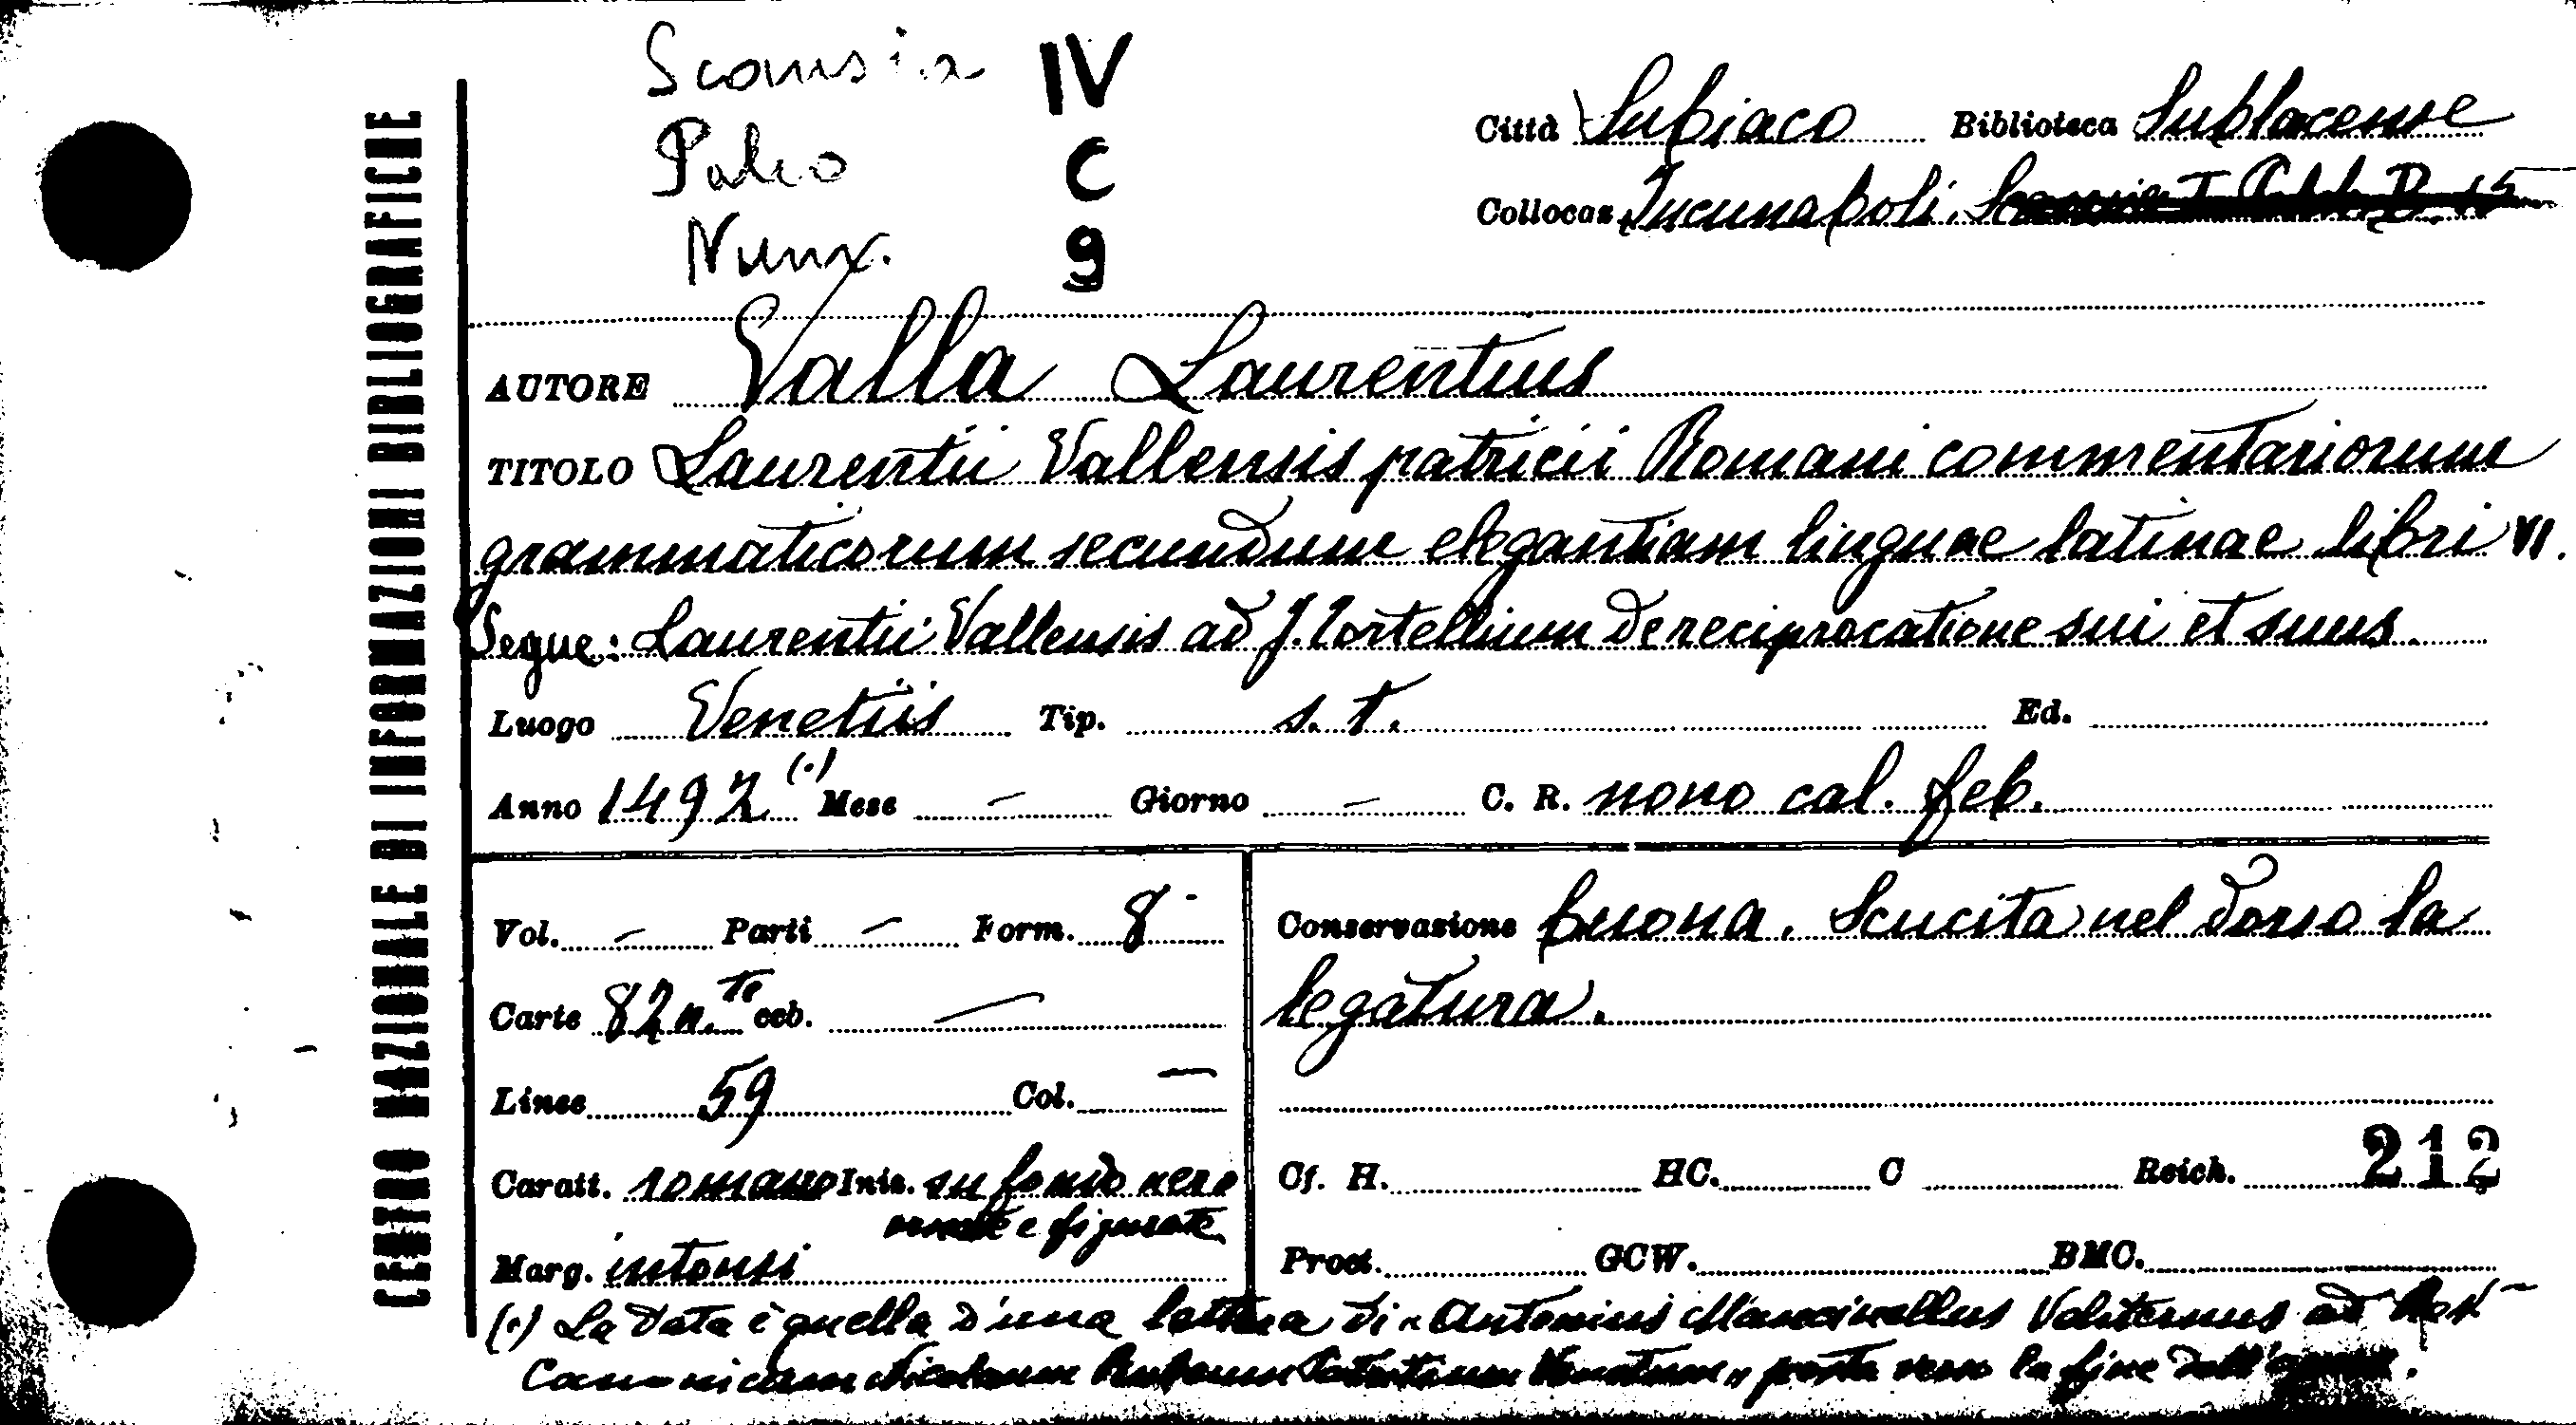 Scansia IV
Palco C
Num. 9
Città Subiaco Biblioteca Sublacense
Collocaz. Incunaboli. Scansia I Palch. D. 15
CENTRO NAZIONALE DI INFORMAZIONI BIBLIOGRAFICHE
AUTORE Valla Laurentius
TITOLO Laurentii Vallensis patricii Romani commentariorum
grammaticorum secundum elegantiam linguae latinae libri VI.
Segue: Laurentii Vallensis ad J. Tortellium de reciprocatione sui et suus.
Luogo Venetiis Tip. s. t. Ed.
Anno 1492 (·) Mese — Giorno — C. R. nono cal. feb.
Vol. — Parti — Form. 8-
Carte 82 n.te ccb. —
Linee 59 Col. —
Caratt. romano Iniz. su fondo nero
ornate e figurate
Marg. intonsi
Conservazione buona. Scucita nel dorso la
legatura.
Cf. H. HC. C Reich. 212
Proct. GCW. BMC.
(·) La data è quella d'una lettera di "Antonius Mancinellus Veliternus ad
Canonicum Nicolaum posta verso la fine dell'opera.